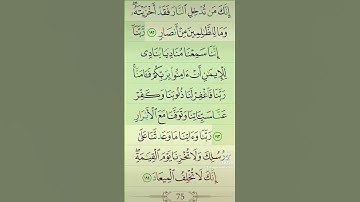 إِنَّكَ مَن تُدْخِلِ ٱلنَّارَ فَقَدْ أَخْزَيْتَهُۥ ۖ
وَمَا لِلظَّٰلِمِينَ مِنْ أَنصَارٍ ١٩٢ رَّبَّنَآ
إِنَّنَا سَمِعْنَا مُنَادِيًا يُنَادِى
لِلْإِيمَٰنِ أَنْ ءَامِنُوا۟ بِرَبِّكُمْ فَـَٔامَنَّا ۚ
رَبَّنَا فَٱغْفِرْ لَنَا ذُنُوبَنَا وَكَفِّرْ
عَنَّا سَيِّـَٔاتِنَا وَتَوَفَّنَا مَعَ ٱلْأَبْرَارِ
١٩٣ رَبَّنَا وَءَاتِنَا مَا وَعَدتَّنَا عَلَىٰ
رُسُلِكَ وَلَا تُخْزِنَا يَوْمَ ٱلْقِيَٰمَةِ ۗ
إِنَّكَ لَا تُخْلِفُ ٱلْمِيعَادَ ١٩٤
75